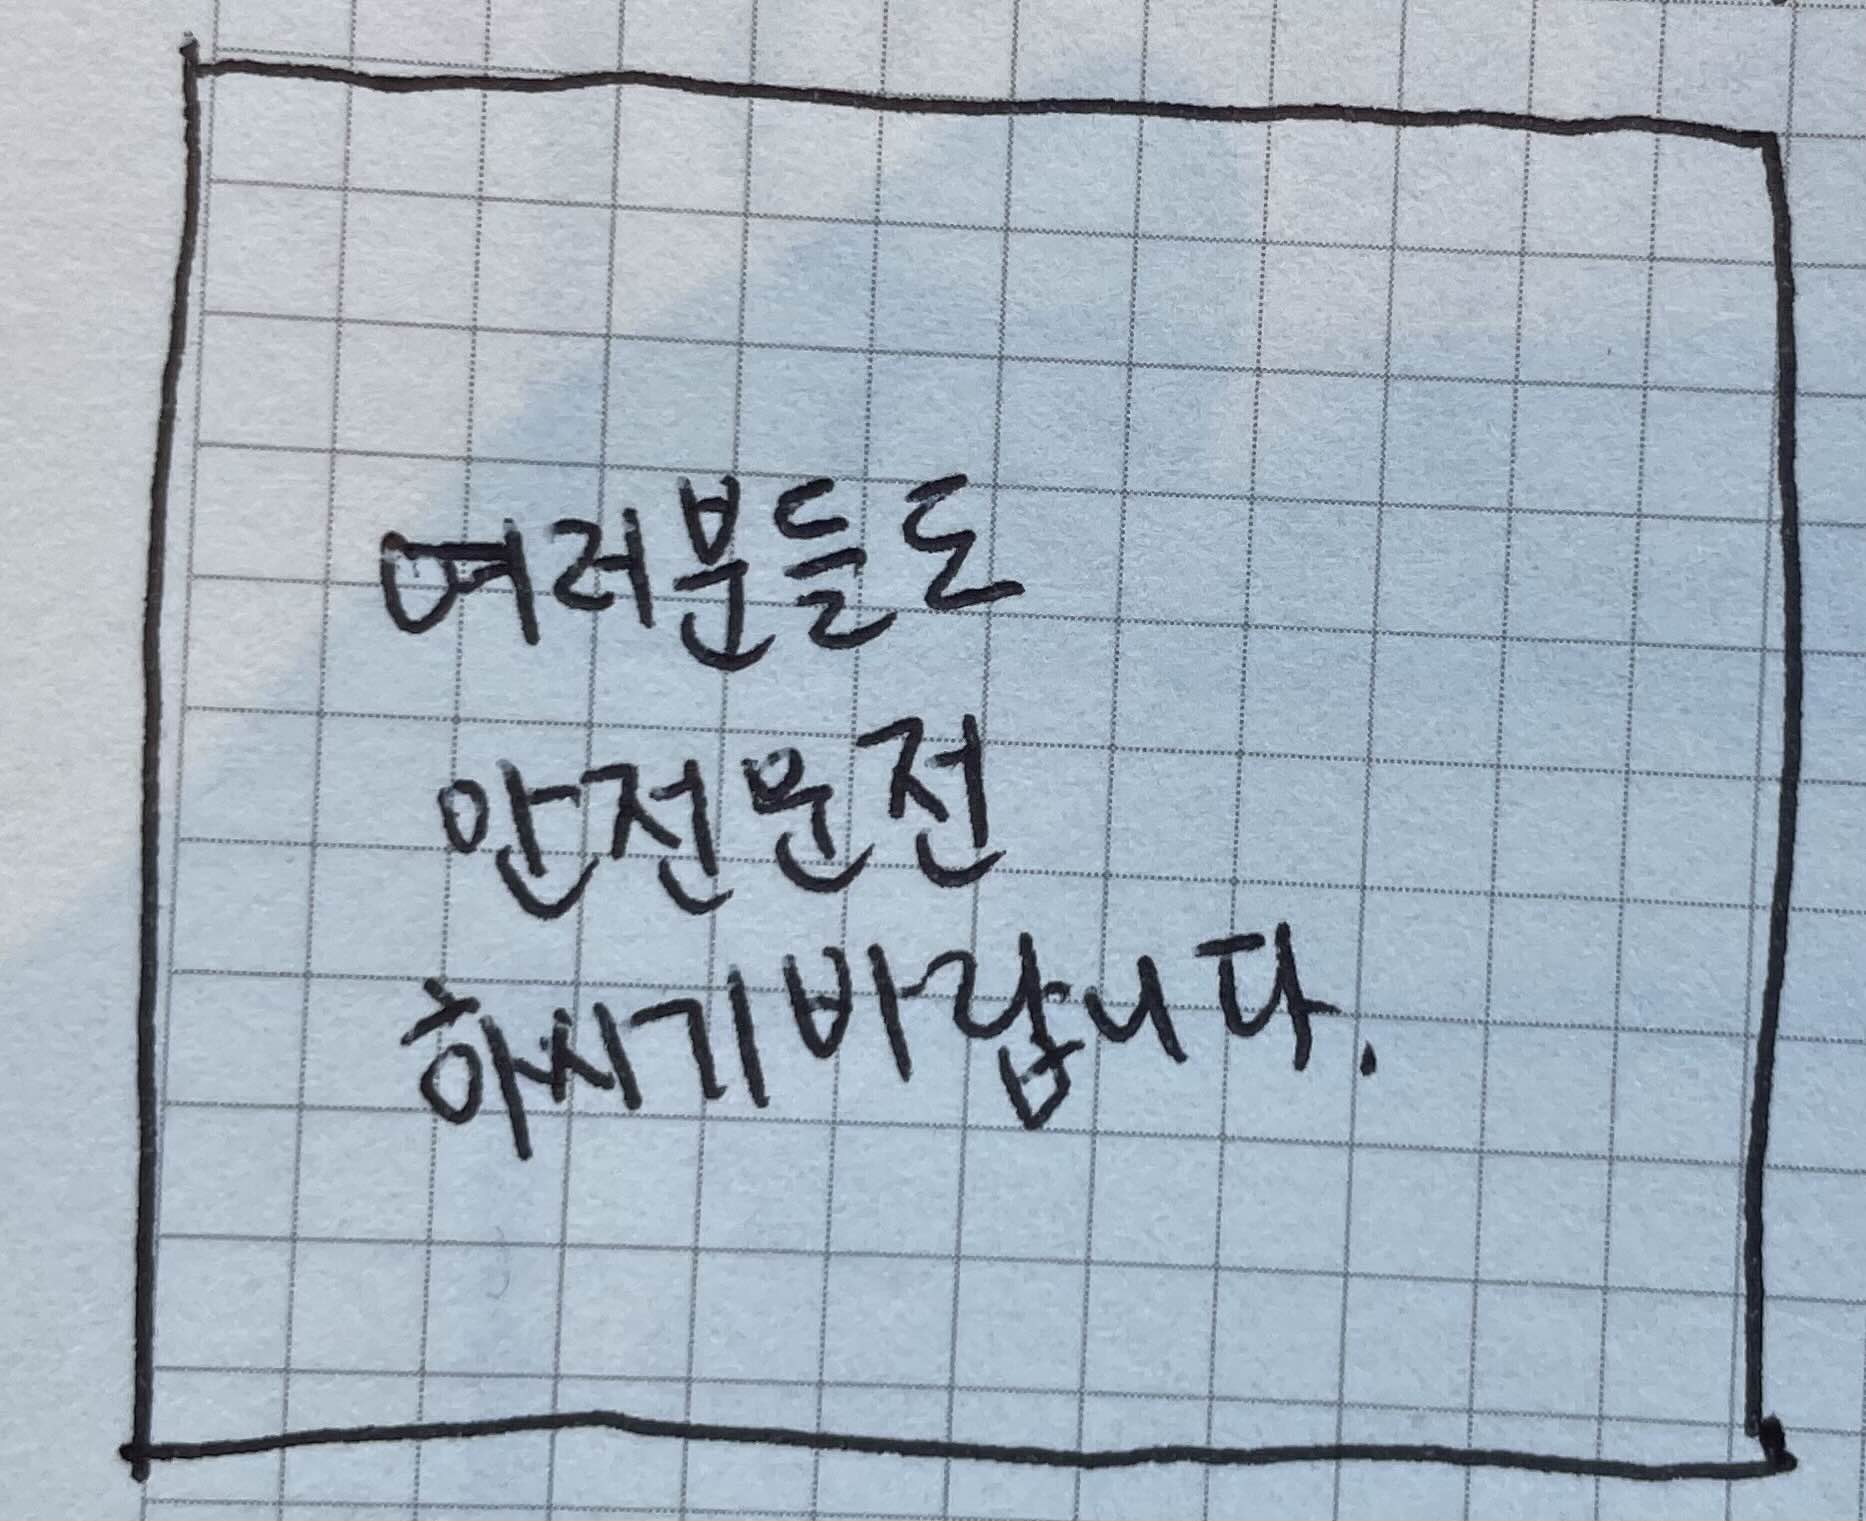 여러분들도
안전운전
하시기바랍니다.